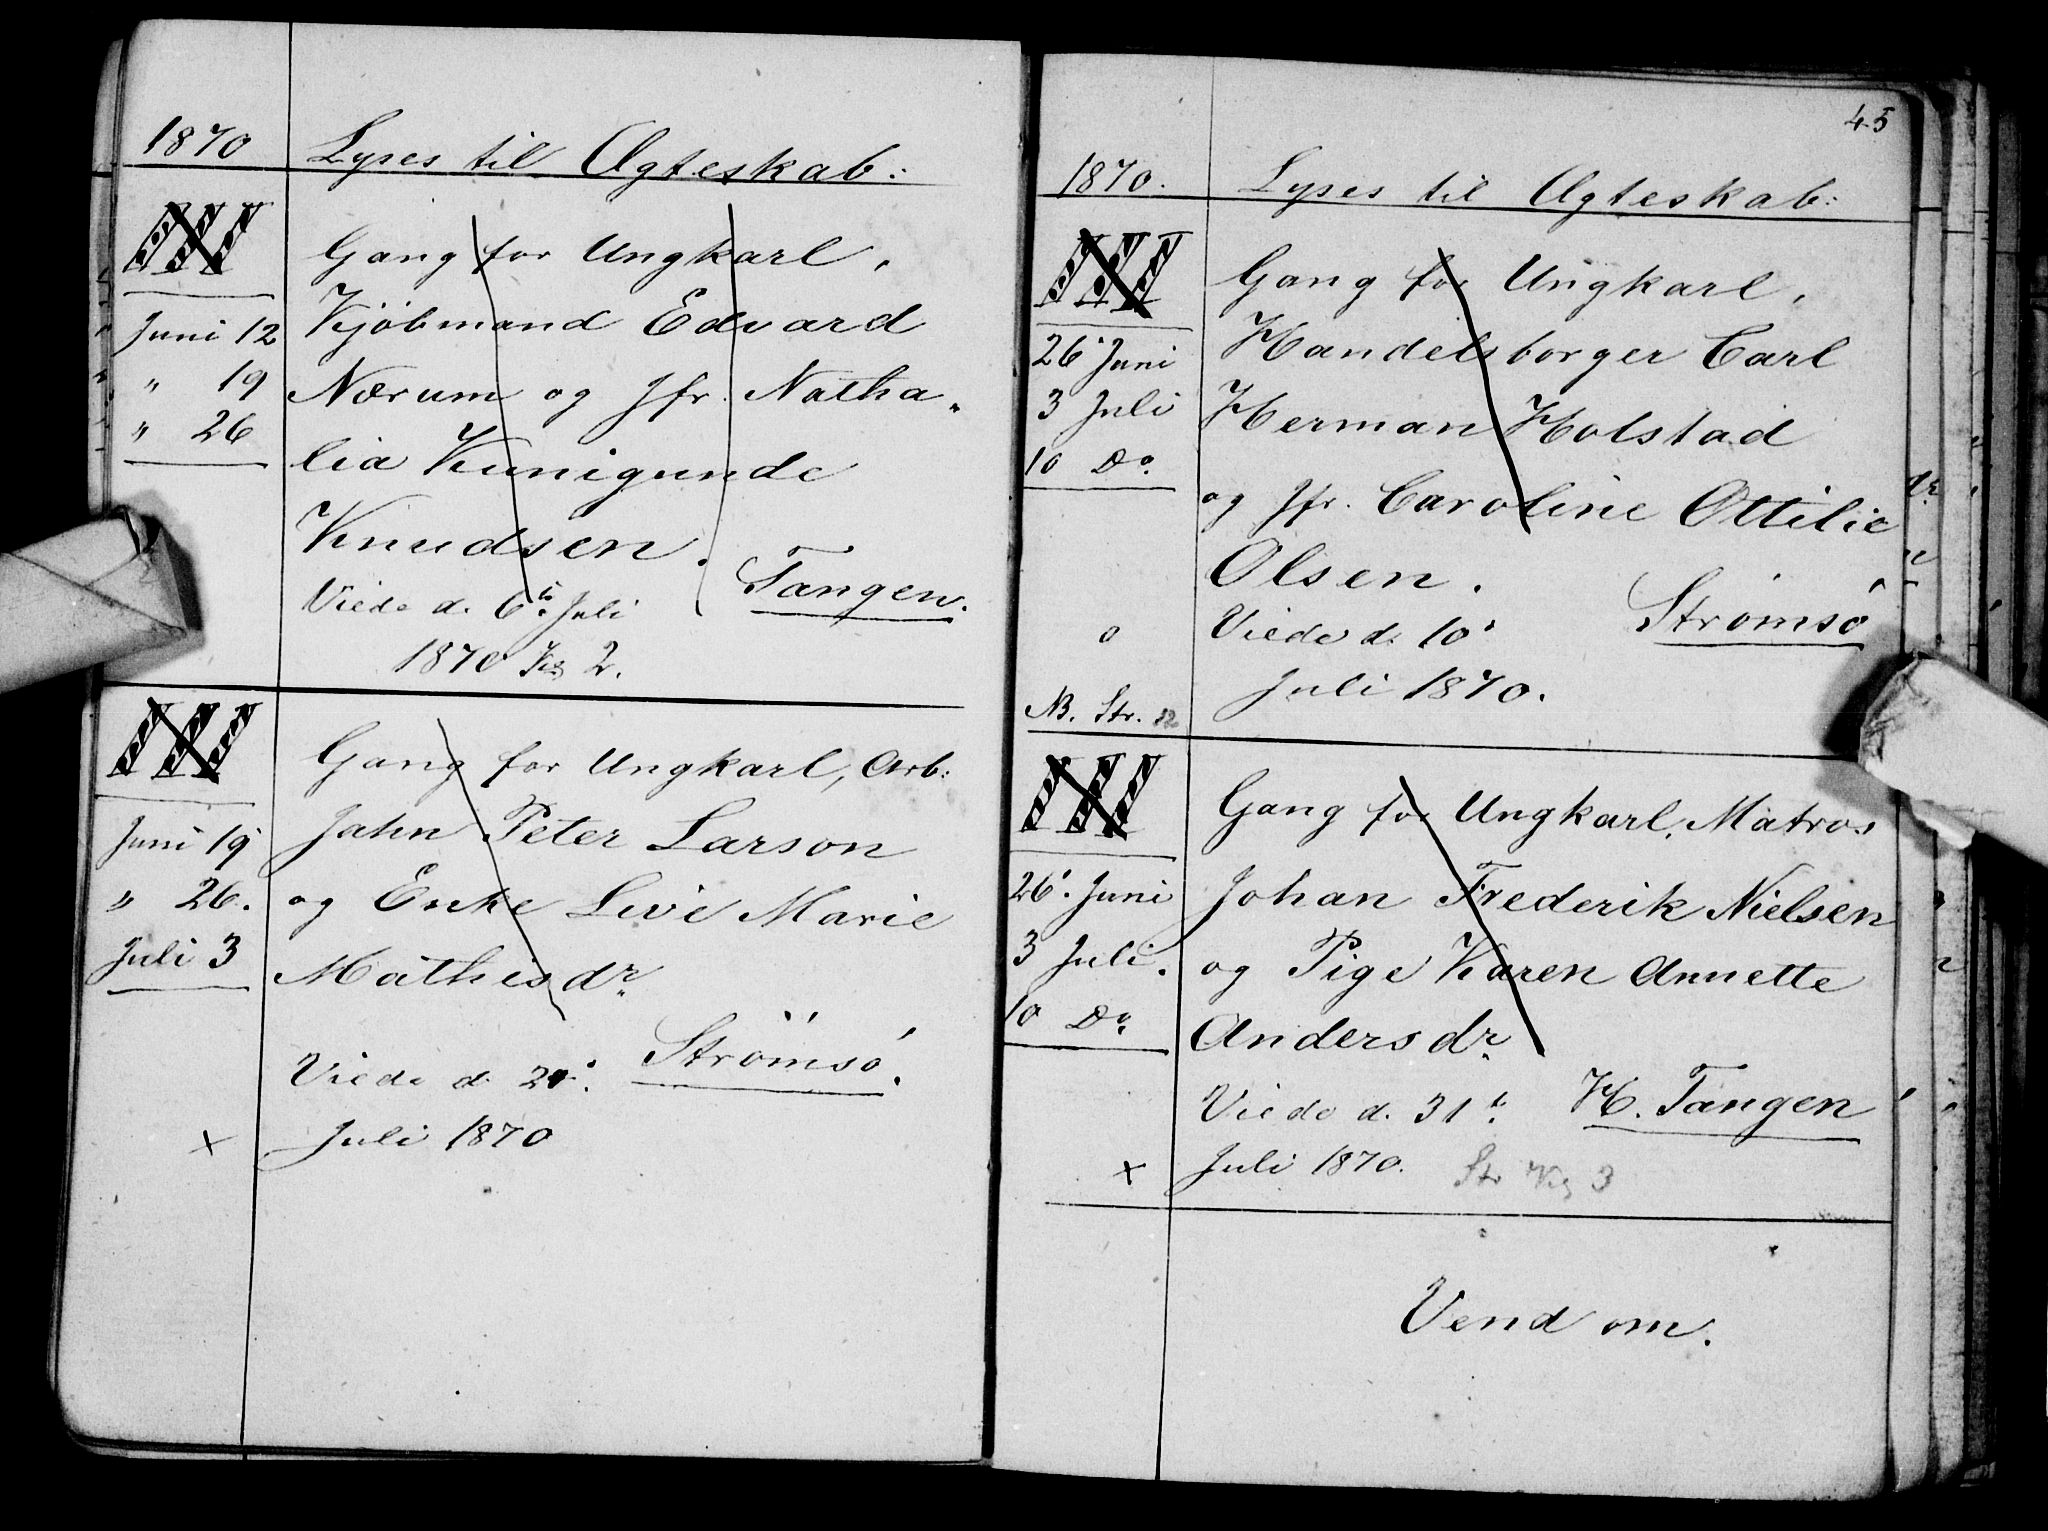 1870 Lyses til Ægteskab:
Gang for Ungkarl,
Juni 12 Kjöbmand Edvard
" 19 Nærum og Jfr. Natha„
" 26 lia Kunigunde
Knudsen.
Viede d. 6te Juli Tangen.
1870 2.
Gang for Ungkarl, Arb:
Juni 19 Jahn Peter Larson
" 26. og Enke Live Marie
Juli 3 Mathisdr.
Viede d. Strömsö.
x Juli 1870
45
1870. Lyses til Ægteskab:
Gang for Ungkarl,
26' Juni Handelsborger Carl
3 Juli Herman Holstad
10 Do. og Jfr. Caroline Ottilie
Olsen. Strömsö
o Viede d. 10'
Juli 1870.
NB. Str. 12
Gang for Ungkarl, Matros
26'. Juni Johan Frederik Nielsen
3 Juli. og Pige Karen Annette
10 Do. Andersdr.
Viede d. 31te H. Tangen
x Juli 1870. Str 3
Vend om.